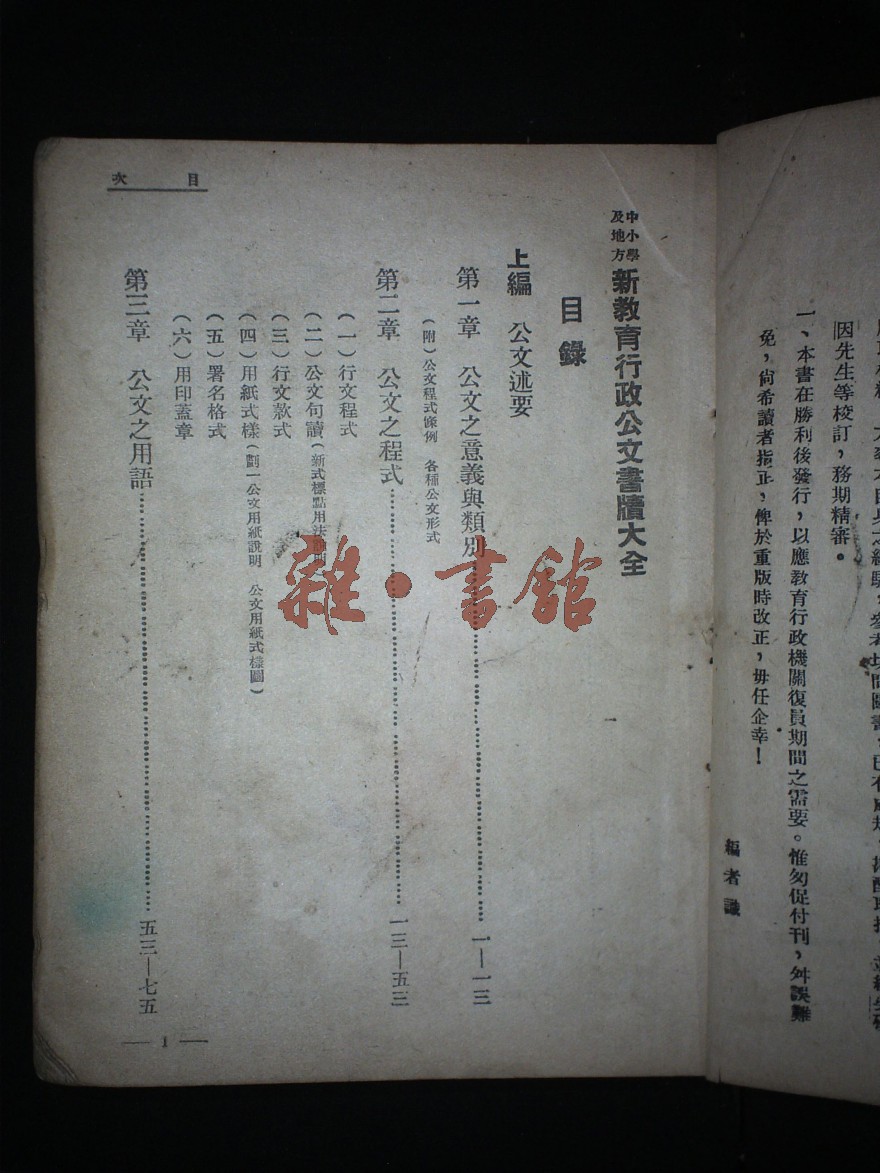 因先生等校訂，務期精審。
一、本書在勝利後發行，以應教育行政機關復員期間之需要。惟匆促付刊，舛誤難
免，尙希讀者指正，俾於重版時改正，毋任企幸！
編者識
目次
中小學
及地方
新教育行政公文書牘大全
目錄
上編　公文述要
第一章　公文之意義與類別……一—一三
（附）公文程式條例　各種公文形式
第二章　公文之程式……一三—五三
（一）行文程式
（二）公文句讀（新式標點用法說明）
（三）行文款式
（四）用紙式樣（劃一公文用紙說明　公文用紙式樣圖）
（五）署名格式
（六）用印蓋章
第三章　公文之用語……五三—七五
— 1 —
雜·書館